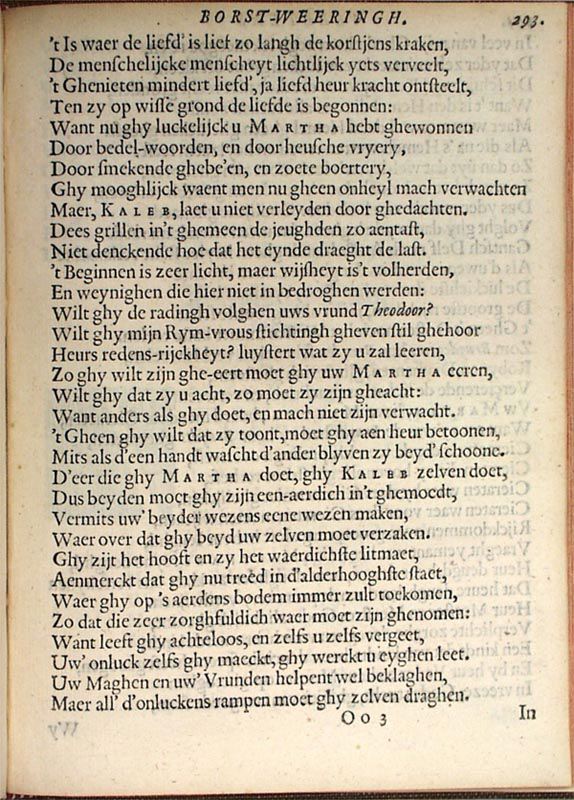 BORST-WEERINGH. 293.
't Is waer de liefd' is lief zo langh de korstjens kraken,
De menschelijcke menscheyt lichtlijck yets verveelt,
't Ghenieten mindert liefd', ja liefd heur kracht ontsteelt,
Ten zy op wisse grond de liefde is begonnen:
Want nu ghy luckelijck u MARTHA hebt ghewonnen
Door bedel-woorden, en door heusche vryery,
Door smekende ghebe'en, en zoete boertery,
Ghy mooghlijck waent men nu gheen onheyl mach verwachten
Maer, KALEB, laet u niet verleyden door ghedachten.
Dees grillen in't ghemeen de jeughden zo aentast,
Niet denckende hoe dat het eynde draeght de last.
't Beginnen is zeer licht, maer wijsheyt is't volherden,
En weynighen die hier niet in bedroghen werden:
Wilt ghy de radingh volghen uws vrund Theodoor?
Wilt ghy mijn Rym-vrous stichtingh gheven stil ghehoor
Heurs redens-rijckheyt? luystert wat zy u zal leeren,
Zo ghy wilt zijn ghe-eert moet ghy uw MARTHA eeren,
Wilt ghy dat zy u acht, zo moet zy zijn gheacht:
Want anders als ghy doet, en mach niet zijn verwacht.
't Gheen ghy wilt dat zy toont, moet ghy aen heur betoonen,
Mits als d'een handt wascht d'ander blyven zy beyd' schoone.
D'eer die ghy MARTHA doet, ghy KALEB zelven doet,
Dus beyden moet ghy zijn een-aerdich in't ghemoedt,
Vermits uw' beyder wezens eene wezen maken,
Waer over dat ghy beyd uw zelven moet verzaken.
Ghy zijt het hooft en zy het waerdichste litmaet,
Aenmerckt dat ghy nu treed in d'alderhooghste staet,
Waer ghy op 's aerdens bodem immer zult toekomen,
Zo dat die zeer zorghfuldich waer moet zijn ghenomen:
Want leeft ghy achteloos, en zelfs u zelfs vergeet,
Uw' onluck zelfs ghy maeckt, ghy werckt u eyghen leet.
Uw Maghen en uw' Vrunden helpent wel beklaghen,
Maer all' d'onluckens rampen moet ghy zelven draghen.
Oo 3 In